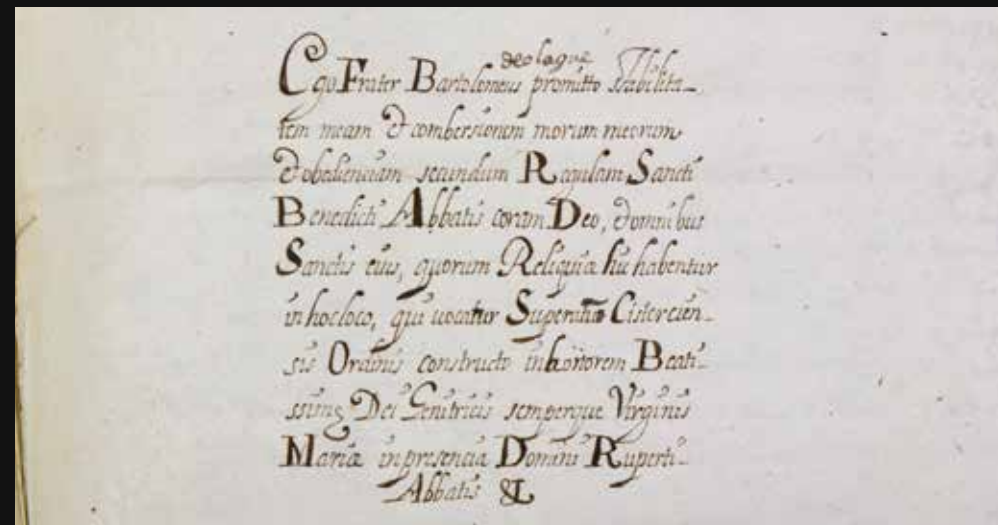 Ego Frater Bartolomeus deolaque promitto stabilita-
tem meam & combersionem morum meorum
& obedienciam secundum Regulam Sancti
Benedicti Abbatis coram Deo, & omnibus
Sanctis eius, quorum Reliquiæ hic habentur
in hoc loco, qui vocatur Cistercien-
sis Ordinis constructo in honorem Beati-
ssimę Dei Genitricis semperque Virginis
Mariæ in presencia Domini Ruperti
Abbatis &